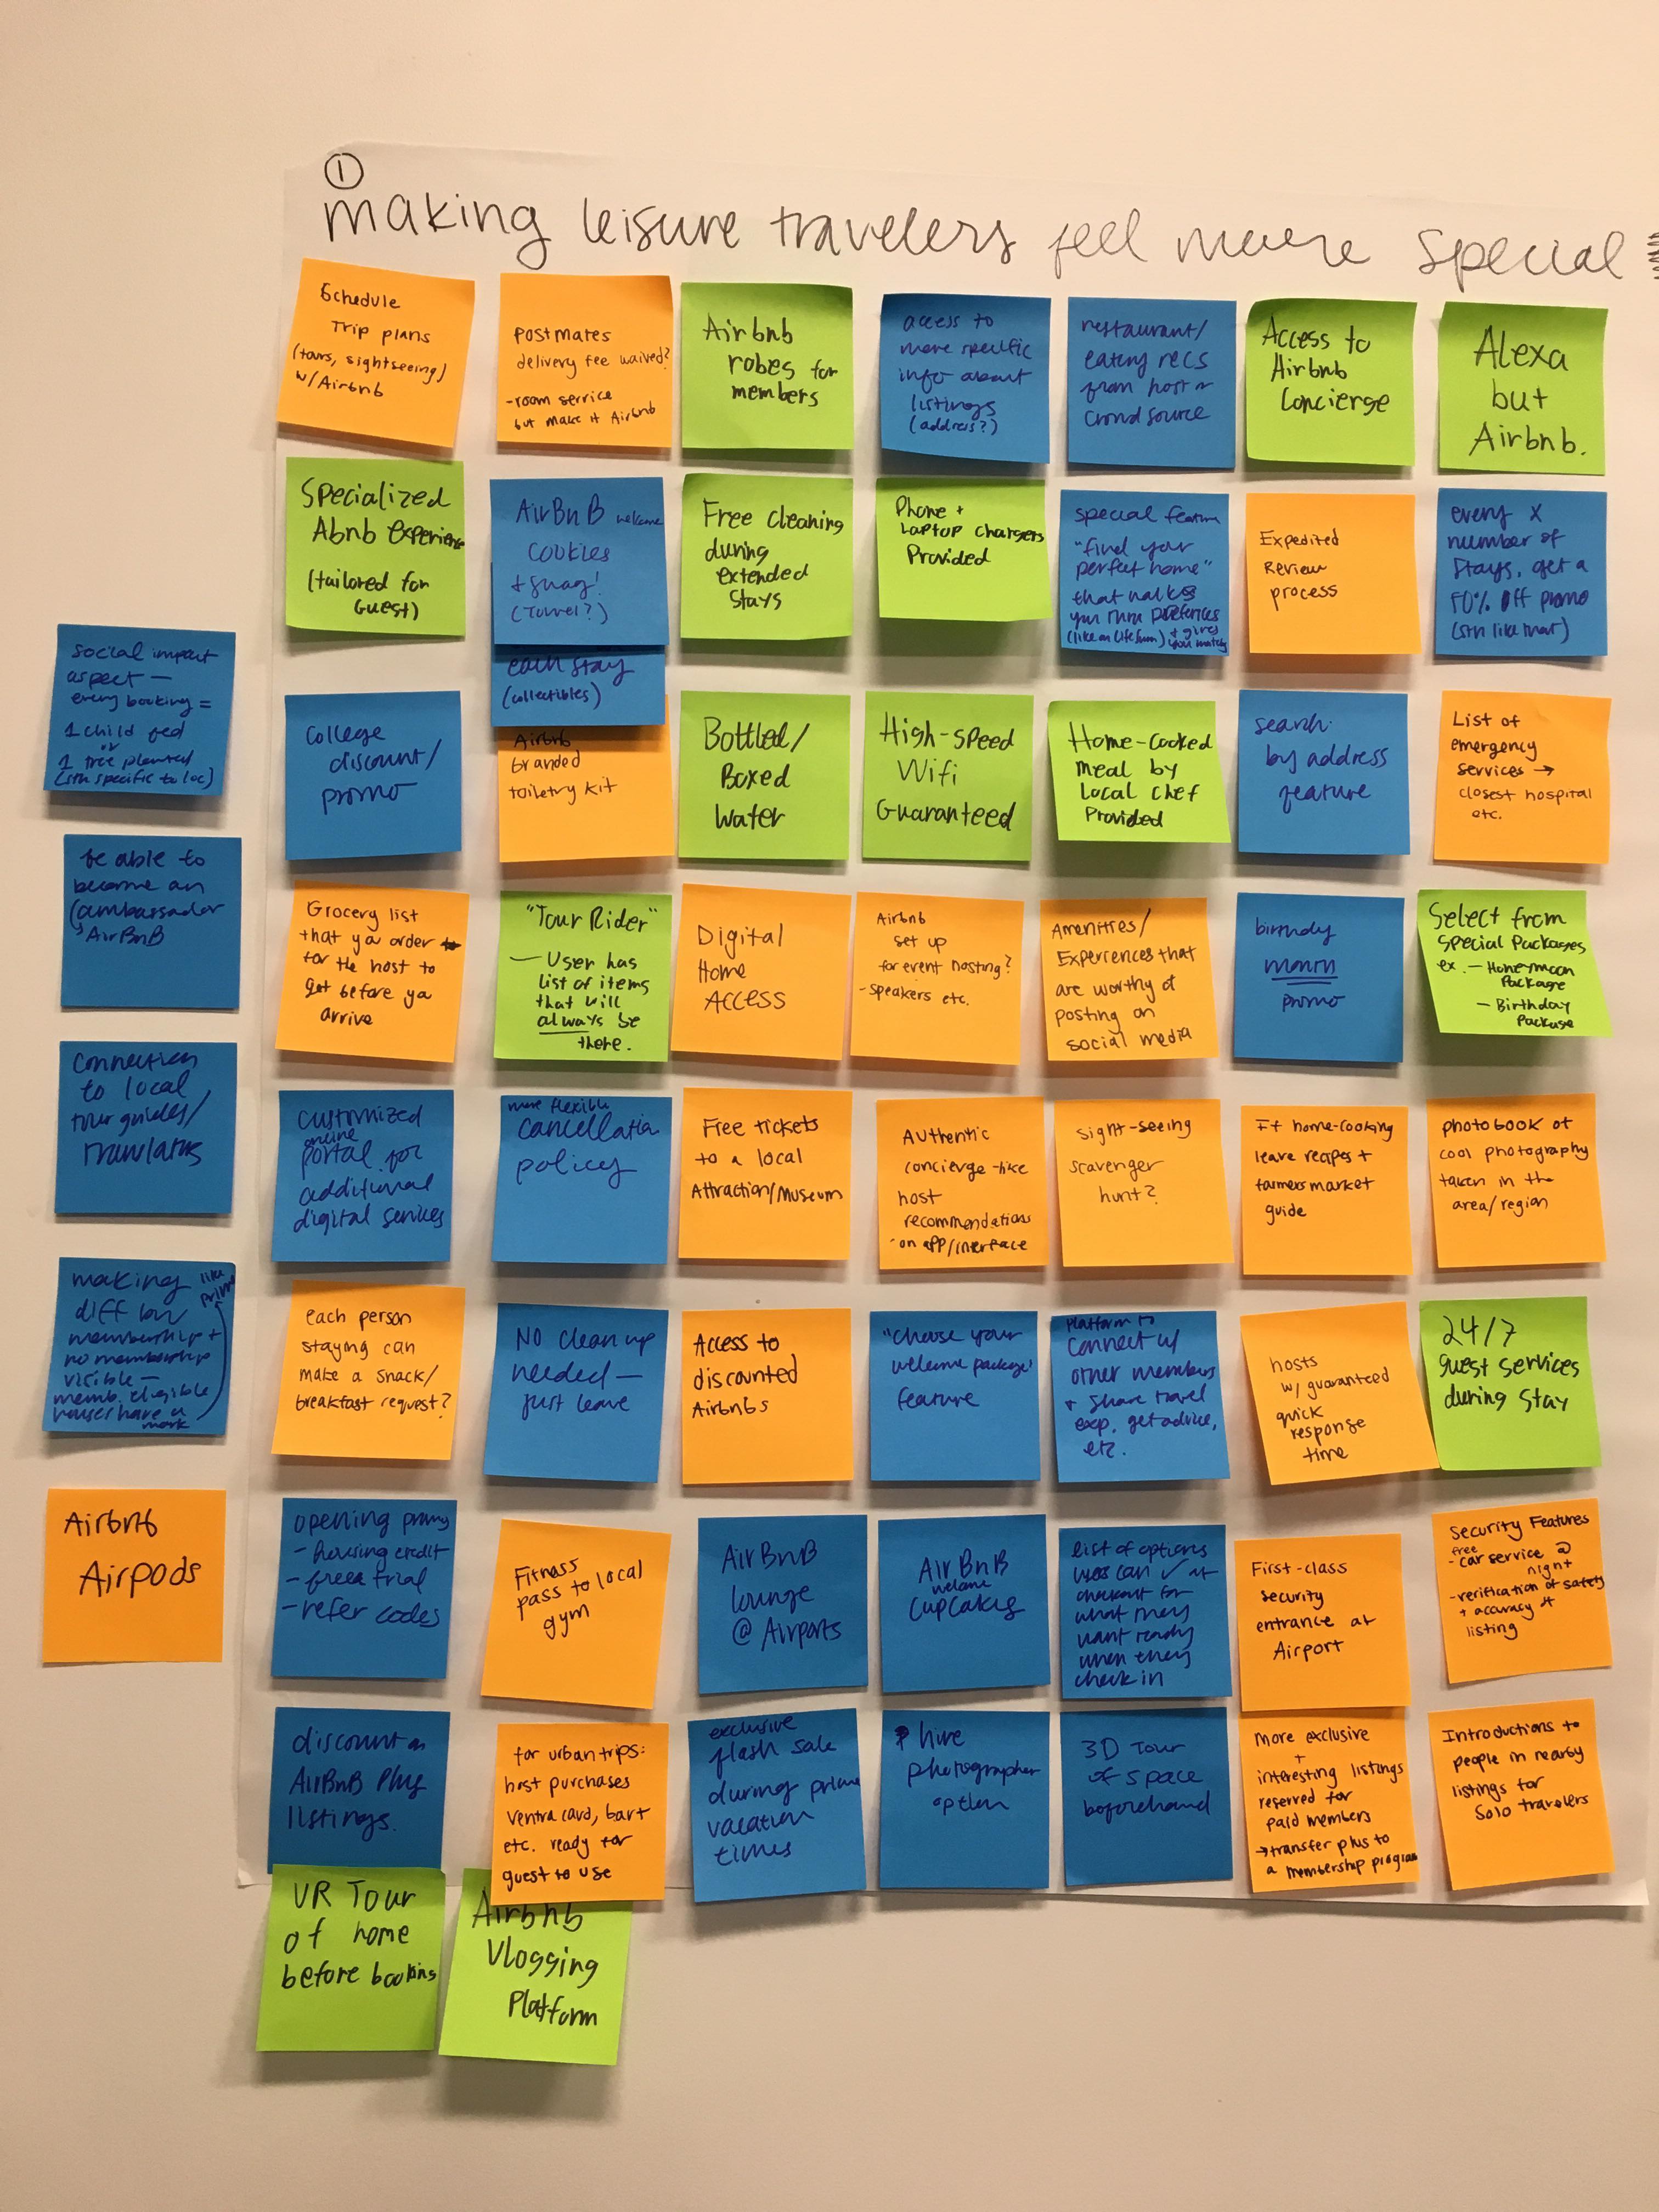 1
making leisure travelers feel more special
Schedule
Trip plans
(tours, sightseeing)
w/Airbnb
postmates
delivery fee waived?
-room service
but make it Airbnb
Airbnb
robes for
members
access to
more specific
info about
listings
(address?)
restaurant/
eating recs
from host or
crowdsource
Access to
Airbnb
Concierge
Alexa
but
Airbnb.
Specialized
Abnb Experience
(tailored for
Guest)
AirBnB welcome
cookies
+ swag!
(towel?)
each stay
(collectibles)
Free cleaning
during
extended
stays
Phone +
Laptop chargers
Provided
special feature
"find your
perfect home"
that walks
you thru preferences
(like on lifesum) + gives
you matches
Expedited
Review
process
every x
number of
stays, get a
50% off promo
(sth like that)
social impact
aspect —
every booking =
1 child fed
or
1 tree planted
(sth specific to loc)
college
discount/
promo
Airbnb
branded
toiletry kit
Bottled/
Boxed
Water
High-speed
Wifi
Guaranteed
Home-cooked
meal by
Local chef
Provided
search
by address
feature
List of
emergency
services →
closest hospital
etc.
be able to
become an
ambassador
AirBnB
Grocery list
that you order
for the host to
get before you
arrive
"Tour Rider"
— User has
list of items
that will
always be
there.
Digital
Home
Access
Airbnb
set up
for event hosting?
-speakers etc.
Amenities/
Experiences that
are worthy of
posting on
social media
birthday
month
promo
Select from
Special Packages
ex. — Honeymoon
Package
— Birthday
Package
connection
to local
tour guides/
translators
customized
online
portal for
additional
digital services
more flexible
cancellation
policy
Free tickets
to a local
Attraction/Museum
Authentic
concierge-like
host
recommendations
on app/interface
sight-seeing
scavenger
hunt?
If home-cooking
leave recipes +
farmers market
guide
photobook of
cool photography
taken in the
area/region
making like
diff btw prime
membership +
no membership
visible —
memb. eligible
houses have a
mark
each person
staying can
make a snack/
breakfast request?
NO clean up
needed —
just leave
Access to
discounted
Airbnbs
"choose your
welcome package"
feature
platform to
connect w/
other members
+ share travel
exp, get advice,
etc.
hosts
w/ guaranteed
quick
response
time
24/7
guest services
during stay
Airbnb
Airpods
opening
- housing credit
- free trial
- refer codes
Fitness
pass to local
gym
AirBnB
lounge
@ Airports
AirBnB
welcome
cupcakes
list of options
users can ✓ at
checkout for
what they
want ready
when they
check in
First-class
security
entrance at
Airport
Security Features
free
- car service @
night
- verification of safety
+ accuracy of
listing
discount on
AirBnB Plus
listings.
for urban trips:
host purchases
ventra card, bart
etc. ready for
guest to use
exclusive
flash sale
during prime
vacation
times
hire
photographer
option
3D Tour
of space
beforehand
More exclusive
+
interesting listings
reserved for
paid members
→transfer plus to
a membership program
Introductions to
people in nearby
listings for
solo travelers
VR Tour
of home
before booking
Airbnb
Vlogging
Platform